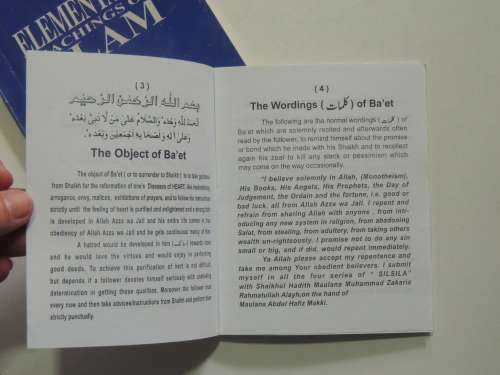 ELEMENT
TEACHINGS O
LAM
( 3 )
بسم الله الرحمن الرحيم
نحمد لله وحده والسلام على من لا نبى بعده
وعلى آله واصحابه اجمعين وبعده.
The Object of Ba'et
The object of Ba'et ( or to surrender to Sheikh ) is to take guidance
from Shaikh for the reformation of one's Diseases of HEART, like
arrogance, envy, malices, exhibitions of prayers, and to follow his instruction
strictly until the feeling of heart is purified and enlightenend and a strong link
in developed in Allah Azza wa Jall and his entire life come in his
obediency of Allah Azza wa Jall and he gets continuous mercy of Him.
A hatred would be developed in him towards vices
and he would love the virtues and would enjoy in performing
good deeds. To achieve this purification of hert is not difficult
but depends if a follower devotes himself seriously with
determination in getting these qualities. Moreover the follower must
every now and then take advices/instructions from Shaikh and perform them
strictly punctually.
( 4 )
The Wordings ( كلمات ) of Ba'et
The following are the normal wordings ( كلمات ) of
Ba'et which are solemnly recited and afterwards often
read by the follower, to remind himself about the promise
or bond which he made with his Shaikh and to recollect
again his zeal to kill any slack or pessimism which
may come on the way occasionally.
"I believe solemnly in Allah, (Monotheism),
His Books, His Angels, His Prophets, the Day of
Judgement, the Ordain and the fortune, i.e. good
or bad luck, all from Allah Azza wa Jall. I repent and
refrain from sharing Allah with anyone . from int-
roducing any new system in religion, from abadoning
Salat, from stealing, from adultery, from taking others
wealth un-righteously. I promise not to do any sin
small or big, and if did, would repeat immediately.
Ya Allah please accept my repentence and
take me among Your obedient believers. I submit
myself in all the four series of " SILSILA"
with Shaikhul Hadith Maulana Muhammad Zakaria
Rahmatullah Alayh;on the hand of
Maulana Abdul Hafiz Makki.